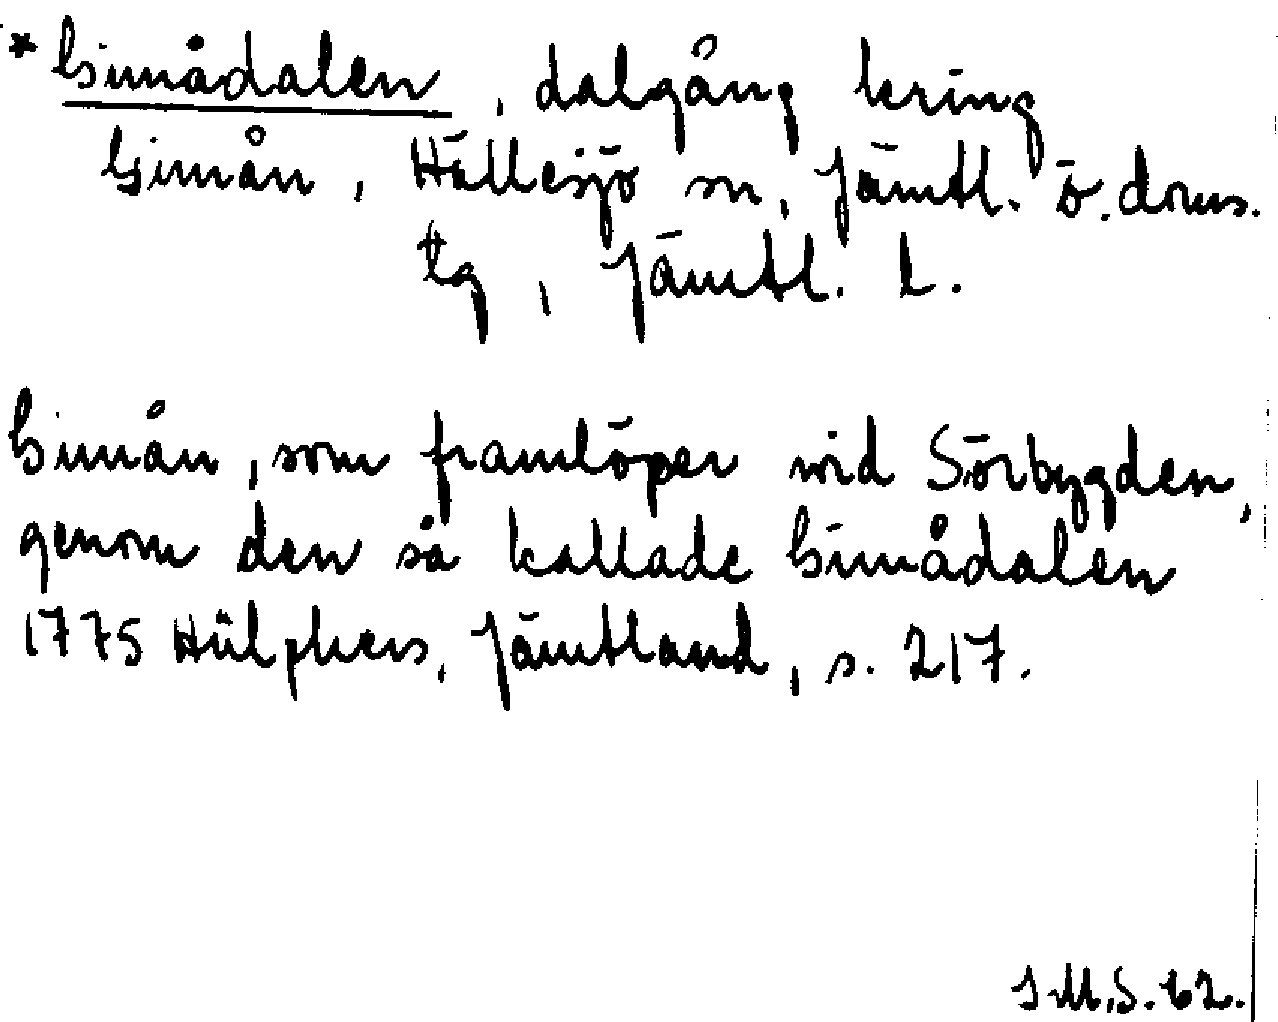 * Gimådalen, dalgång kring
Gimån, Hällesjö sn, Jämtl. ö. doms.
tg, Jämtl. l.
Gimån, som framlöper wid Sörbygden,
genom den så kallade Gimådalen
1775 Hülphers, Jämtland, s. 217.
I.M.S. 62.